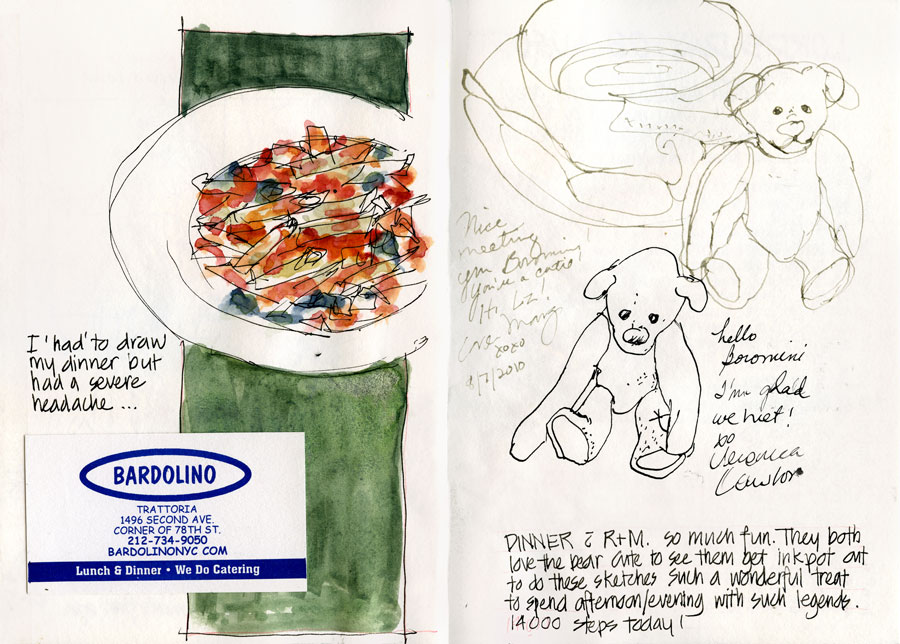 I 'had' to draw
my dinner but
had a severe
headache ...
BARDOLINO
TRATTORIA
1496 SECOND AVE.
CORNER OF 78TH ST.
212-734-9050
BARDOLINONYC COM
Lunch & Dinner • We Do Catering
Nice
meeting
you Boromini!
You're a cutie!
Hi Liz!
Love Marg
xoxo
/7/2010
hello
Boromini
I'm glad
we met!
xo
Veronica
Lawlor
DINNER c̄ R+M. so much fun. They both
love the bear cute to see them get inkpot out
to do these sketches such a wonderful treat
to spend afternoon/evening with such legends.
14000 steps today!